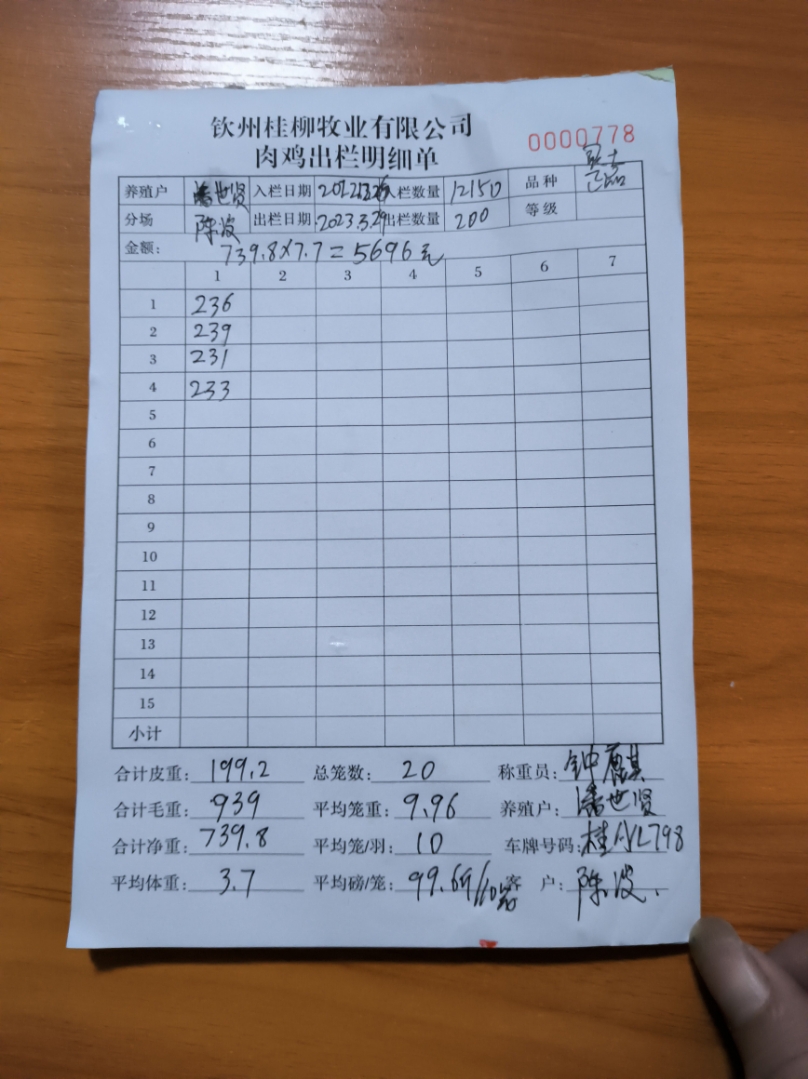 钦州桂柳牧业有限公司
肉鸡出栏明细单
0000778
养殖户 潘世贤 入栏日期 入栏数量 12150 品种
分场 陈波 出栏日期 2023.3.29 出栏数量 200 等级
金额: 739.8×7.7=5696元
1 2 3 4 5 6 7
1 236
2 239
3 231
4 233
5
6
7
8
9
10
11
12
13
14
15
小计
合计皮重: 199.2 总笼数: 20 称重员: 钟麒
合计毛重: 939 平均笼重: 9.96 养殖户: 潘世贤
合计净重: 739.8 平均笼/羽: 10 车牌号码:
平均体重: 3.7 平均磅/笼: 99.69/10 客 户: 陈波